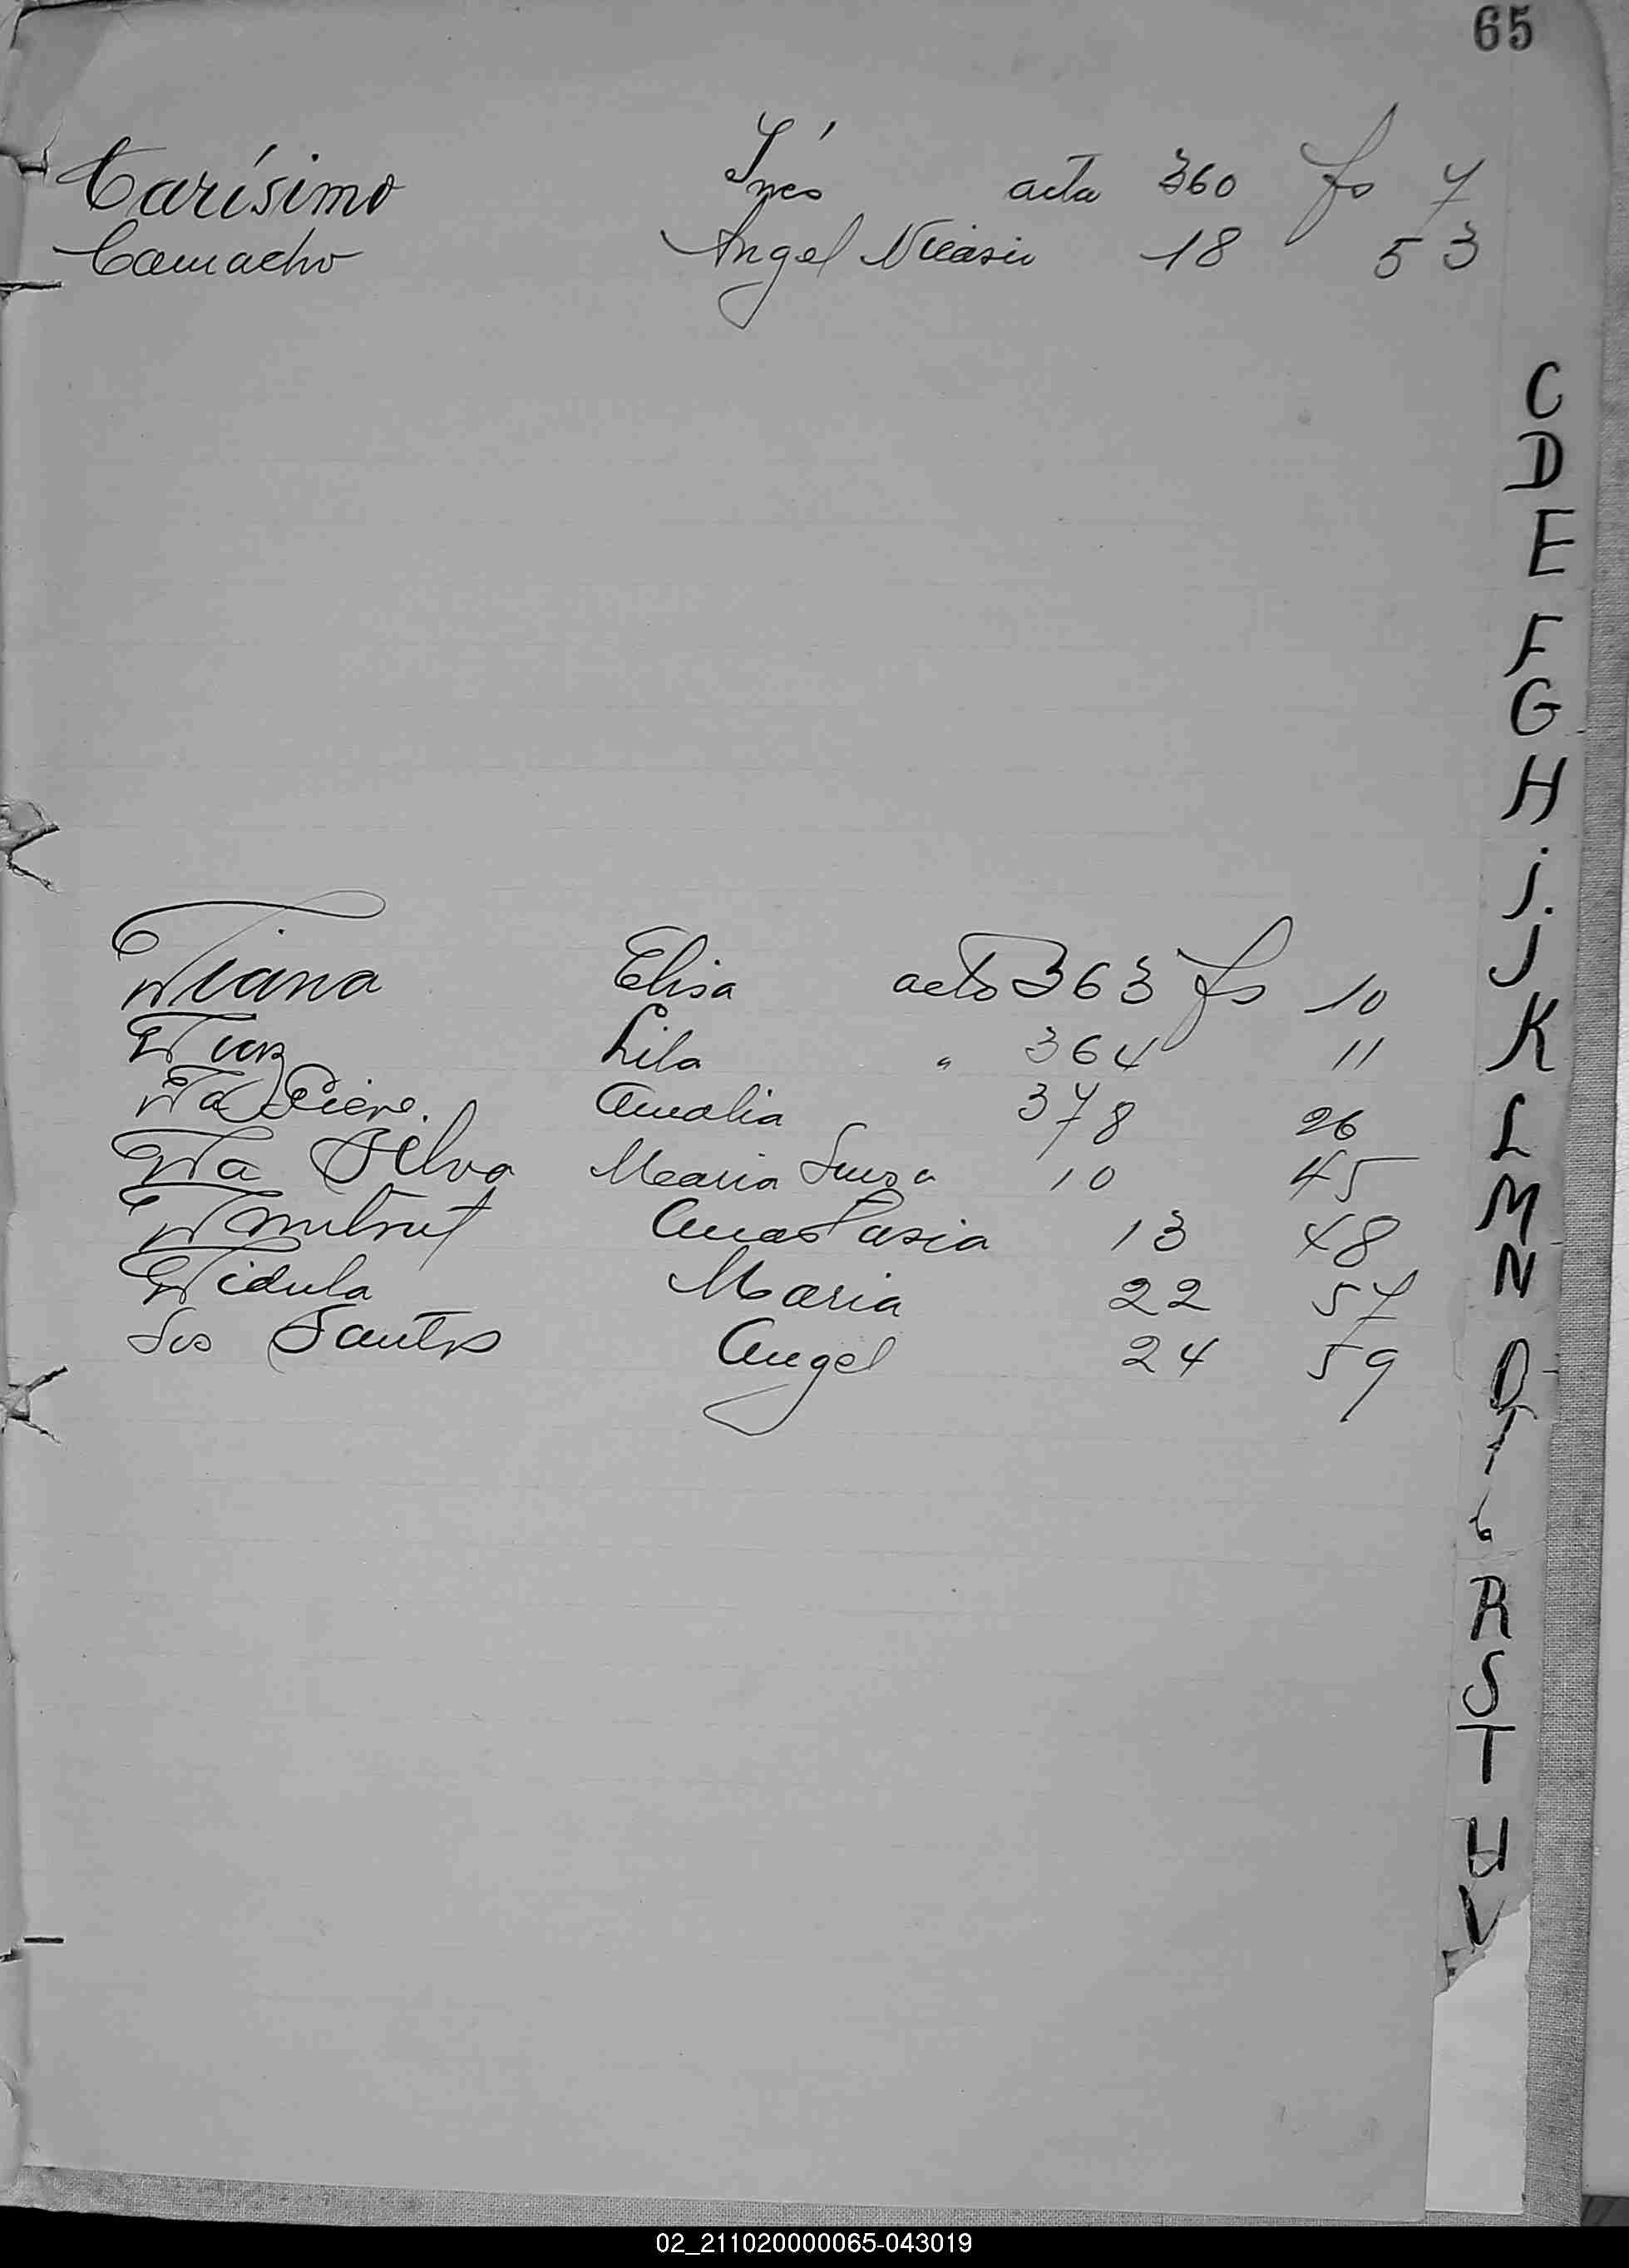 65
Carísimo Inés acta 360 fs 7
Camacho Angel Nicasio 18 53
C
D
E
F
G
H
j.
J
K
L
M
N
O
R
S
T
U
V
Elisa acta 363 fs 10
Lila " 364 11
Amalia 378 26
Da Silva Maria Luisa 10 45
Anastasia 13 48
Maria 22 57
Dos Santos Angel 24 59
02_211020000065-043019